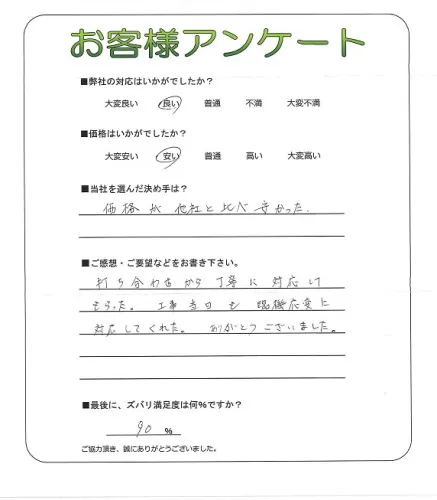 お客様アンケート
■弊社の対応はいかがでしたか？
大変良い 良い 普通 不満 大変不満
■価格はいかがでしたか？
大変安い 安い 普通 高い 大変高い
■当社を選んだ決め手は？
価格が他社と比べ安かった.
■ご感想・ご要望などをお書き下さい。
打ち合わせから丁寧に対応して
もらった。工事当日も臨機応変に
対応してくれた。ありがとうございました。
■最後に、ズバリ満足度は何%ですか？
90 %
ご協力頂き、誠にありがとうございました。